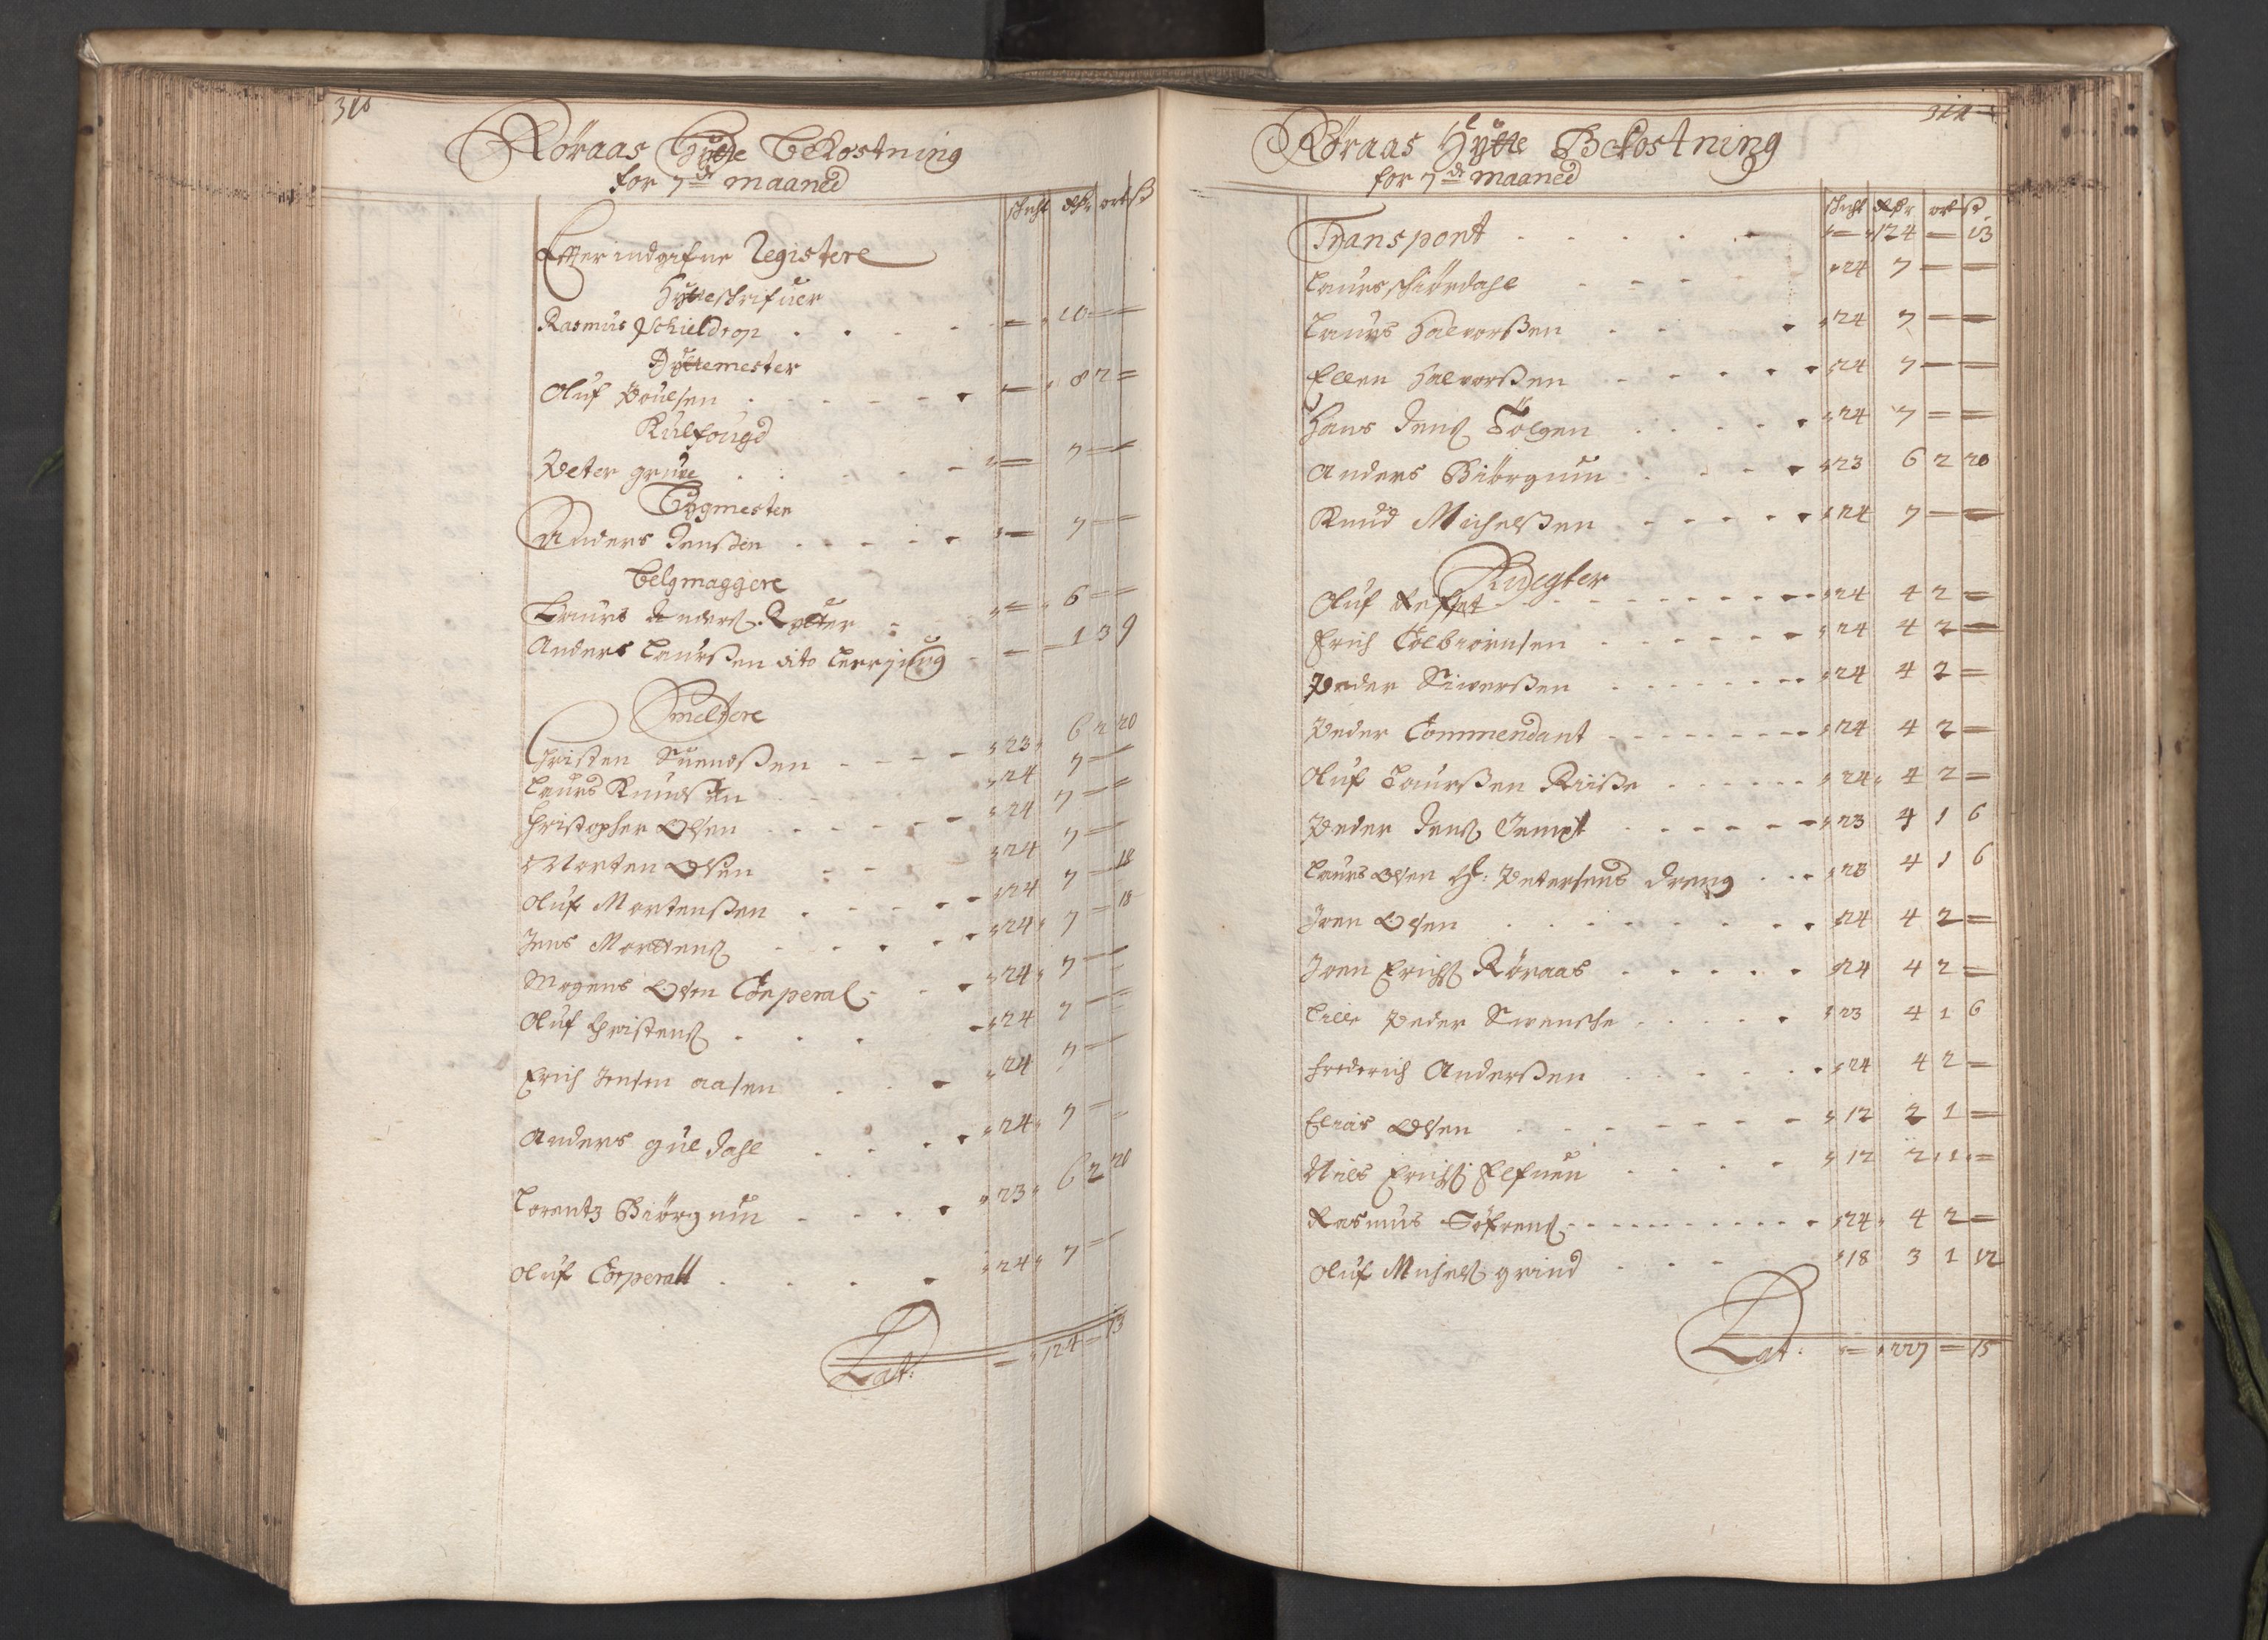 310
Röraas Hytte Bekostning
for 7de maaned
schicht dlr ort ß
Effter indgifne Registere
Hytteschrifuer
Rasmus Schieldrop - 10 - -
Hyttemester
Oluf Poulsen - 8 2 -
Kulfougd
Peter grüve - 7 - -
Bygmester
Anders Jenßen - 7 - -
Belgmaggere
Laurs Anders. Rytter - 6 - -
Anders Laurßen dito - 1 3 9
Smeltere
Christen Suendßen 23 6 2 20
Laurs Knudßen 24 7 - -
Christopher Olsen 24 7 - -
Morten Olsen 24 7 - -
Oluf Mortenßen 24 7 - 18
Jens Mortens. 24 7 - 18
Mogens Olsen Corperal 24 7 - -
Oluf Christens. 24 7 - -
Erich Jensen aasen 24 7 - -
Anders guldahl 24 7 - -
Lorentz Biörgum 23 6 2 20
Oluf Corperall 24 7 - -
Lat: - 124 - 13
311
Röraas Hytte Bekostning
for 7de maaned
schicht dlr ort ß
Transport - 124 - 13
Laurs schiördahl 24 7 - -
Laurs Halvorßen 24 7 - -
Ellen Halvorßen 24 7 - -
Hans Jens. Tolgen 24 7 - -
Anders Biörgum 23 6 2 20
Knud Michelßen 24 7 - -
Knegter
Oluf 24 4 2 -
Erich Colbiörnsen 24 4 2 -
Peder Siverßen 24 4 2 -
Peder Commendant 24 4 2 -
Oluf Laurßen Riiße 24 4 2 -
Peder Jens. Cempt 23 4 1 6
Laurs Olsen H: Petersens dreng 23 4 1 6
Joen Olsen 24 4 2 -
Joen Erichs. Röraas 24 4 2 -
Lille Peder Swensche 23 4 1 6
Frederich Anderßen 24 4 2 -
Elias Olsen 12 2 1 -
Niels Erichs. Elfuen 12 2 1 -
Rasmus Söfrens. 24 4 2 -
Oluf Michels. grind 18 3 1 12
Lat: - 227 - 15